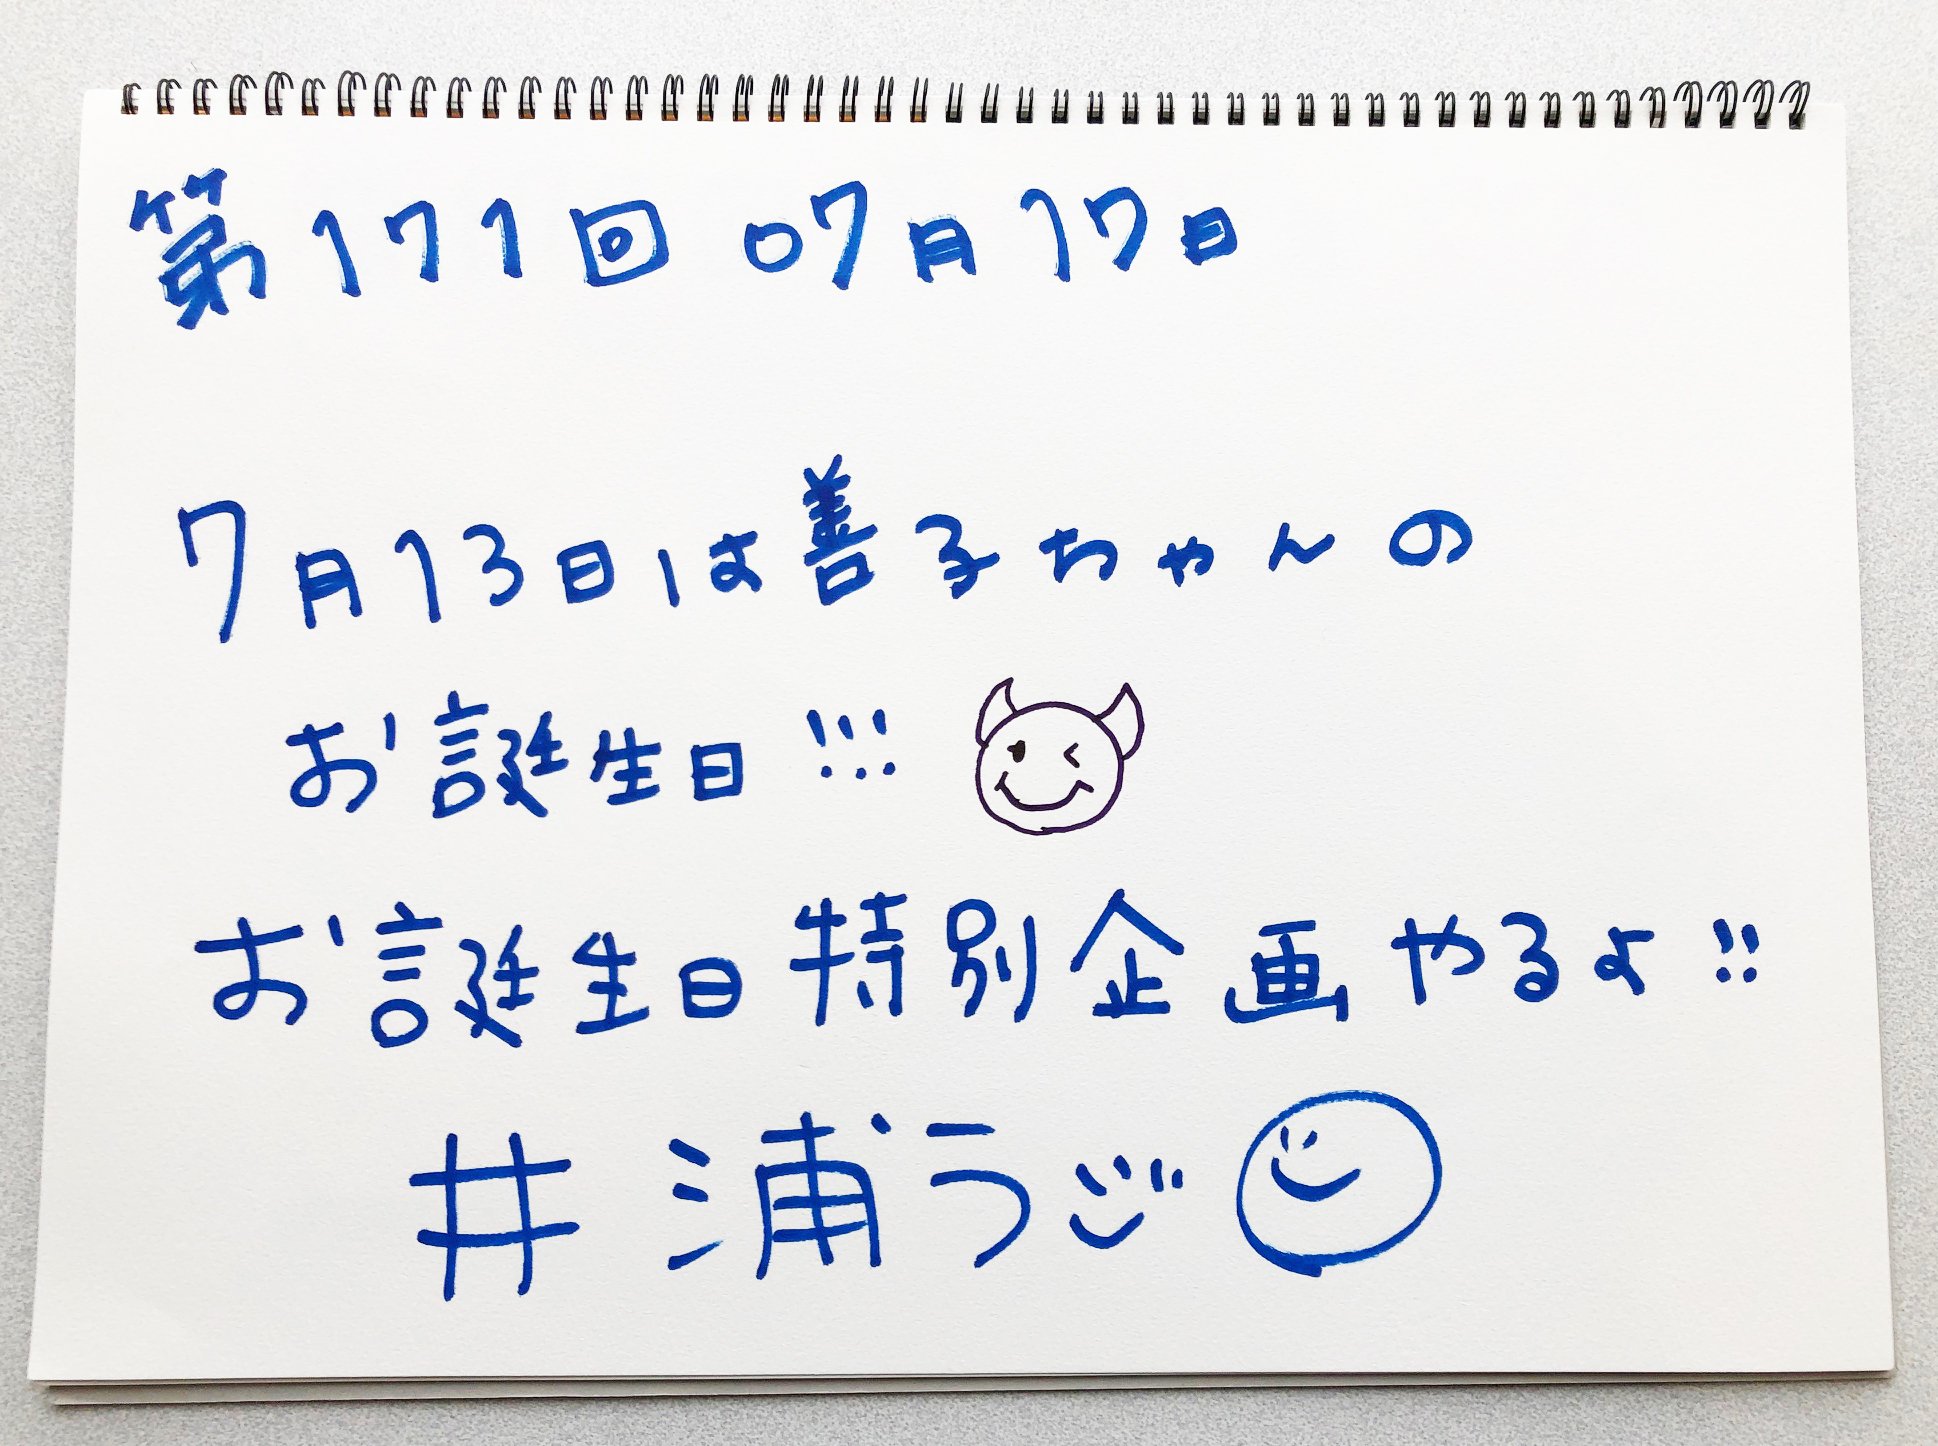 第171回 07月17日
7月13日は善子ちゃんの
お誕生日!!!
お誕生日特別企画やるよ!!
#浦ラジ